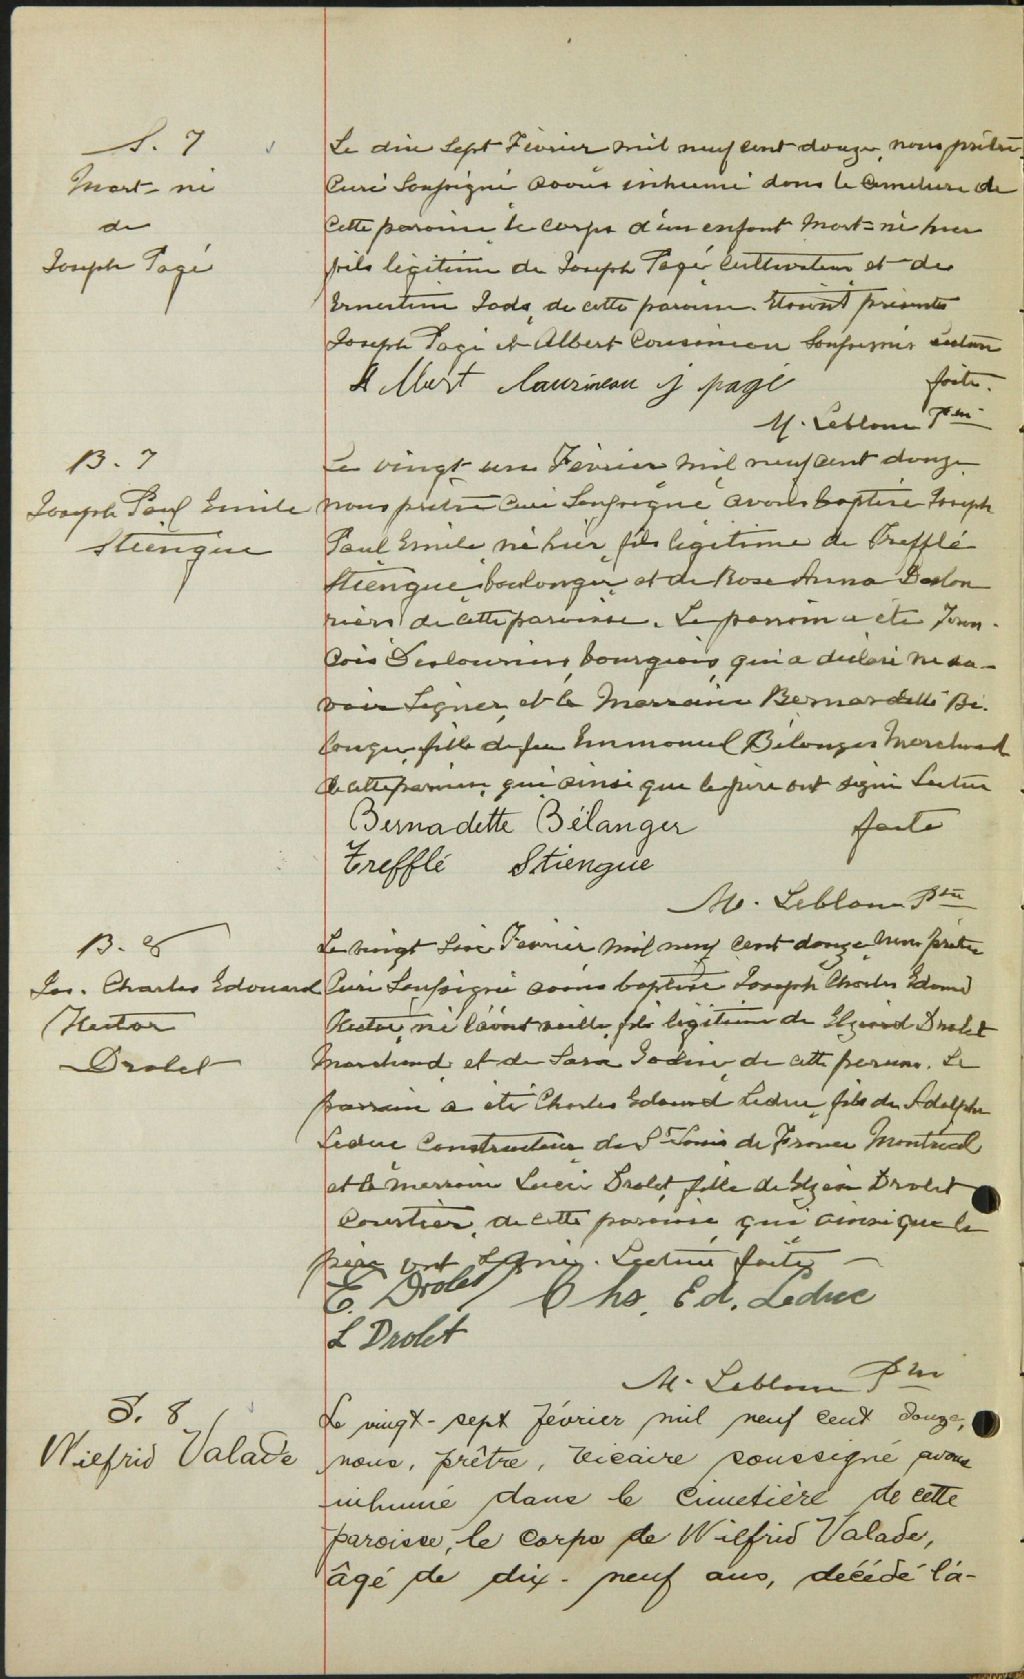 S. 7
Mort-né
de
Joseph Pagé
Le dix sept Février mil neuf cent douze, nous prêtre
Curé Soussigné avons inhumé dans le cimetière de
cette paroisse le corps d'un enfant mort-né hier
fils légitime de Joseph Pagé Cultivateur et de
Ernestine de cette paroisse. Etaient présents
Joseph Pagé et Albert Cousineau Soussignés Lecture
faite.
Albert Cousineau J pagé
M. Leblanc Ptre
B. 7
Joseph Paul Emile
Stiengue
Le vingt un Février mil neuf cent douze
nous prêtre curé Soussigné avons baptisé Joseph
Paul Emile né hier fils légitime de Trefflé
Stiengue boulanger et de Rose Anna Deslau
riers de cette paroisse. Le parrain a été Fran-
cois Deslauriers bourgeois, qui a déclaré ne sa-
voir Signer, et la Marraine Bernardette Bé-
langer fille de feu Emmanuel Bélanger Marchand
de cette paroisse, qui ainsi que le père ont signé Lecture
faite
Bernadette Bélanger
Trefflé Stiengue
M. Leblanc Ptre
B. 8
Jos. Charles Edouard
Hector
Drolet
Le vingt Février mil neuf cent douze nous prêtre
Curé Soussigné avons baptisé Joseph Charles Edouard
Hector, né l'avant veille, fils légitime de Elzéard Drolet
Marchand et de Sara de cette paroisse. Le
parrain a été Charles Edouard Leduc fils de Adolphe
Leduc Constructeur de St Louis de France Montréal
et la Marraine Lucie Drolet fille de Drolet
Courtier, de cette paroisse, qui ainsi que le
père ont signé. Lecture faite
E. Drolet Chs. Ed. Leduc
L Drolet
M. Leblanc Ptre
S. 8
Wilfrid Valade
Le vingt-sept février mil neuf cent douze,
nous, prêtre, vicaire soussigné avons
inhumé dans le cimetière de cette
paroisse, le corps de Wilfrid Valade,
âgé de dix-neuf ans, décédé l'a-